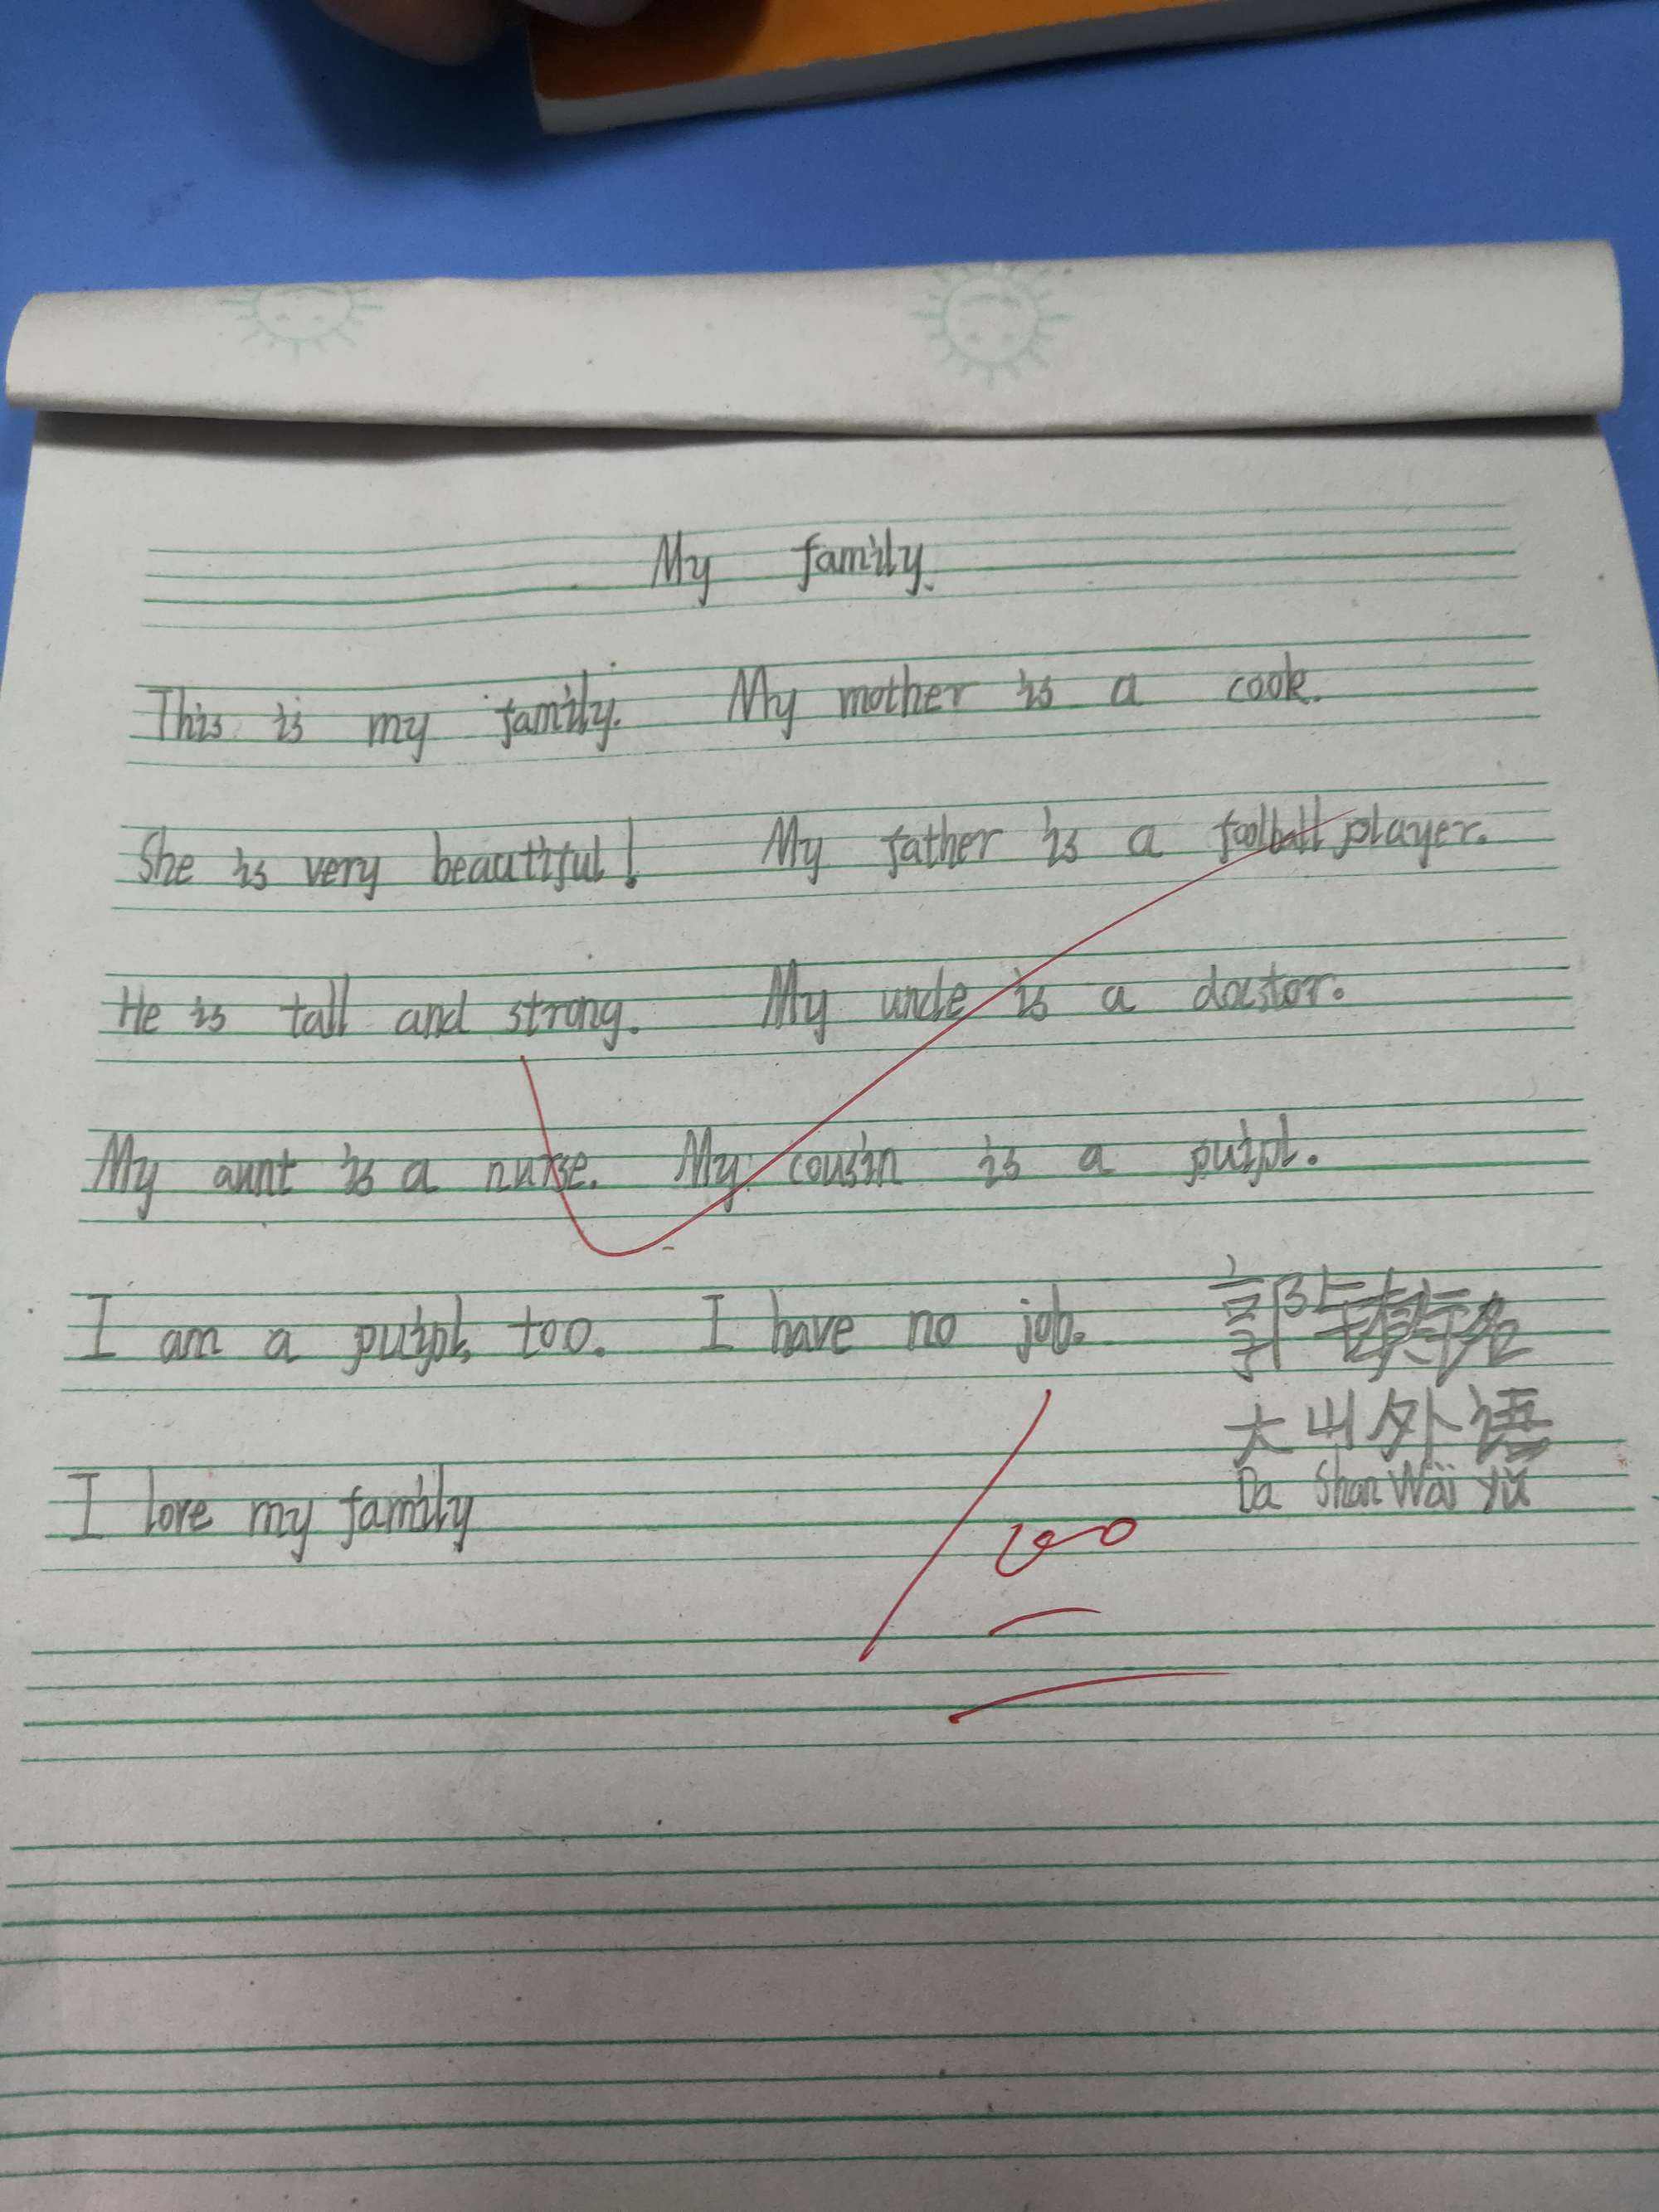 My family.
This is my family. My mother is a cook.
She is very beautiful! My father is a football player.
He is tall and strong. My uncle is a docstor.
My aunt is a nurse. My cousin is a puipl.
I am a puipl, too. I have no job.
大山外语
Da Shan Wài yǔ
I love my family
100